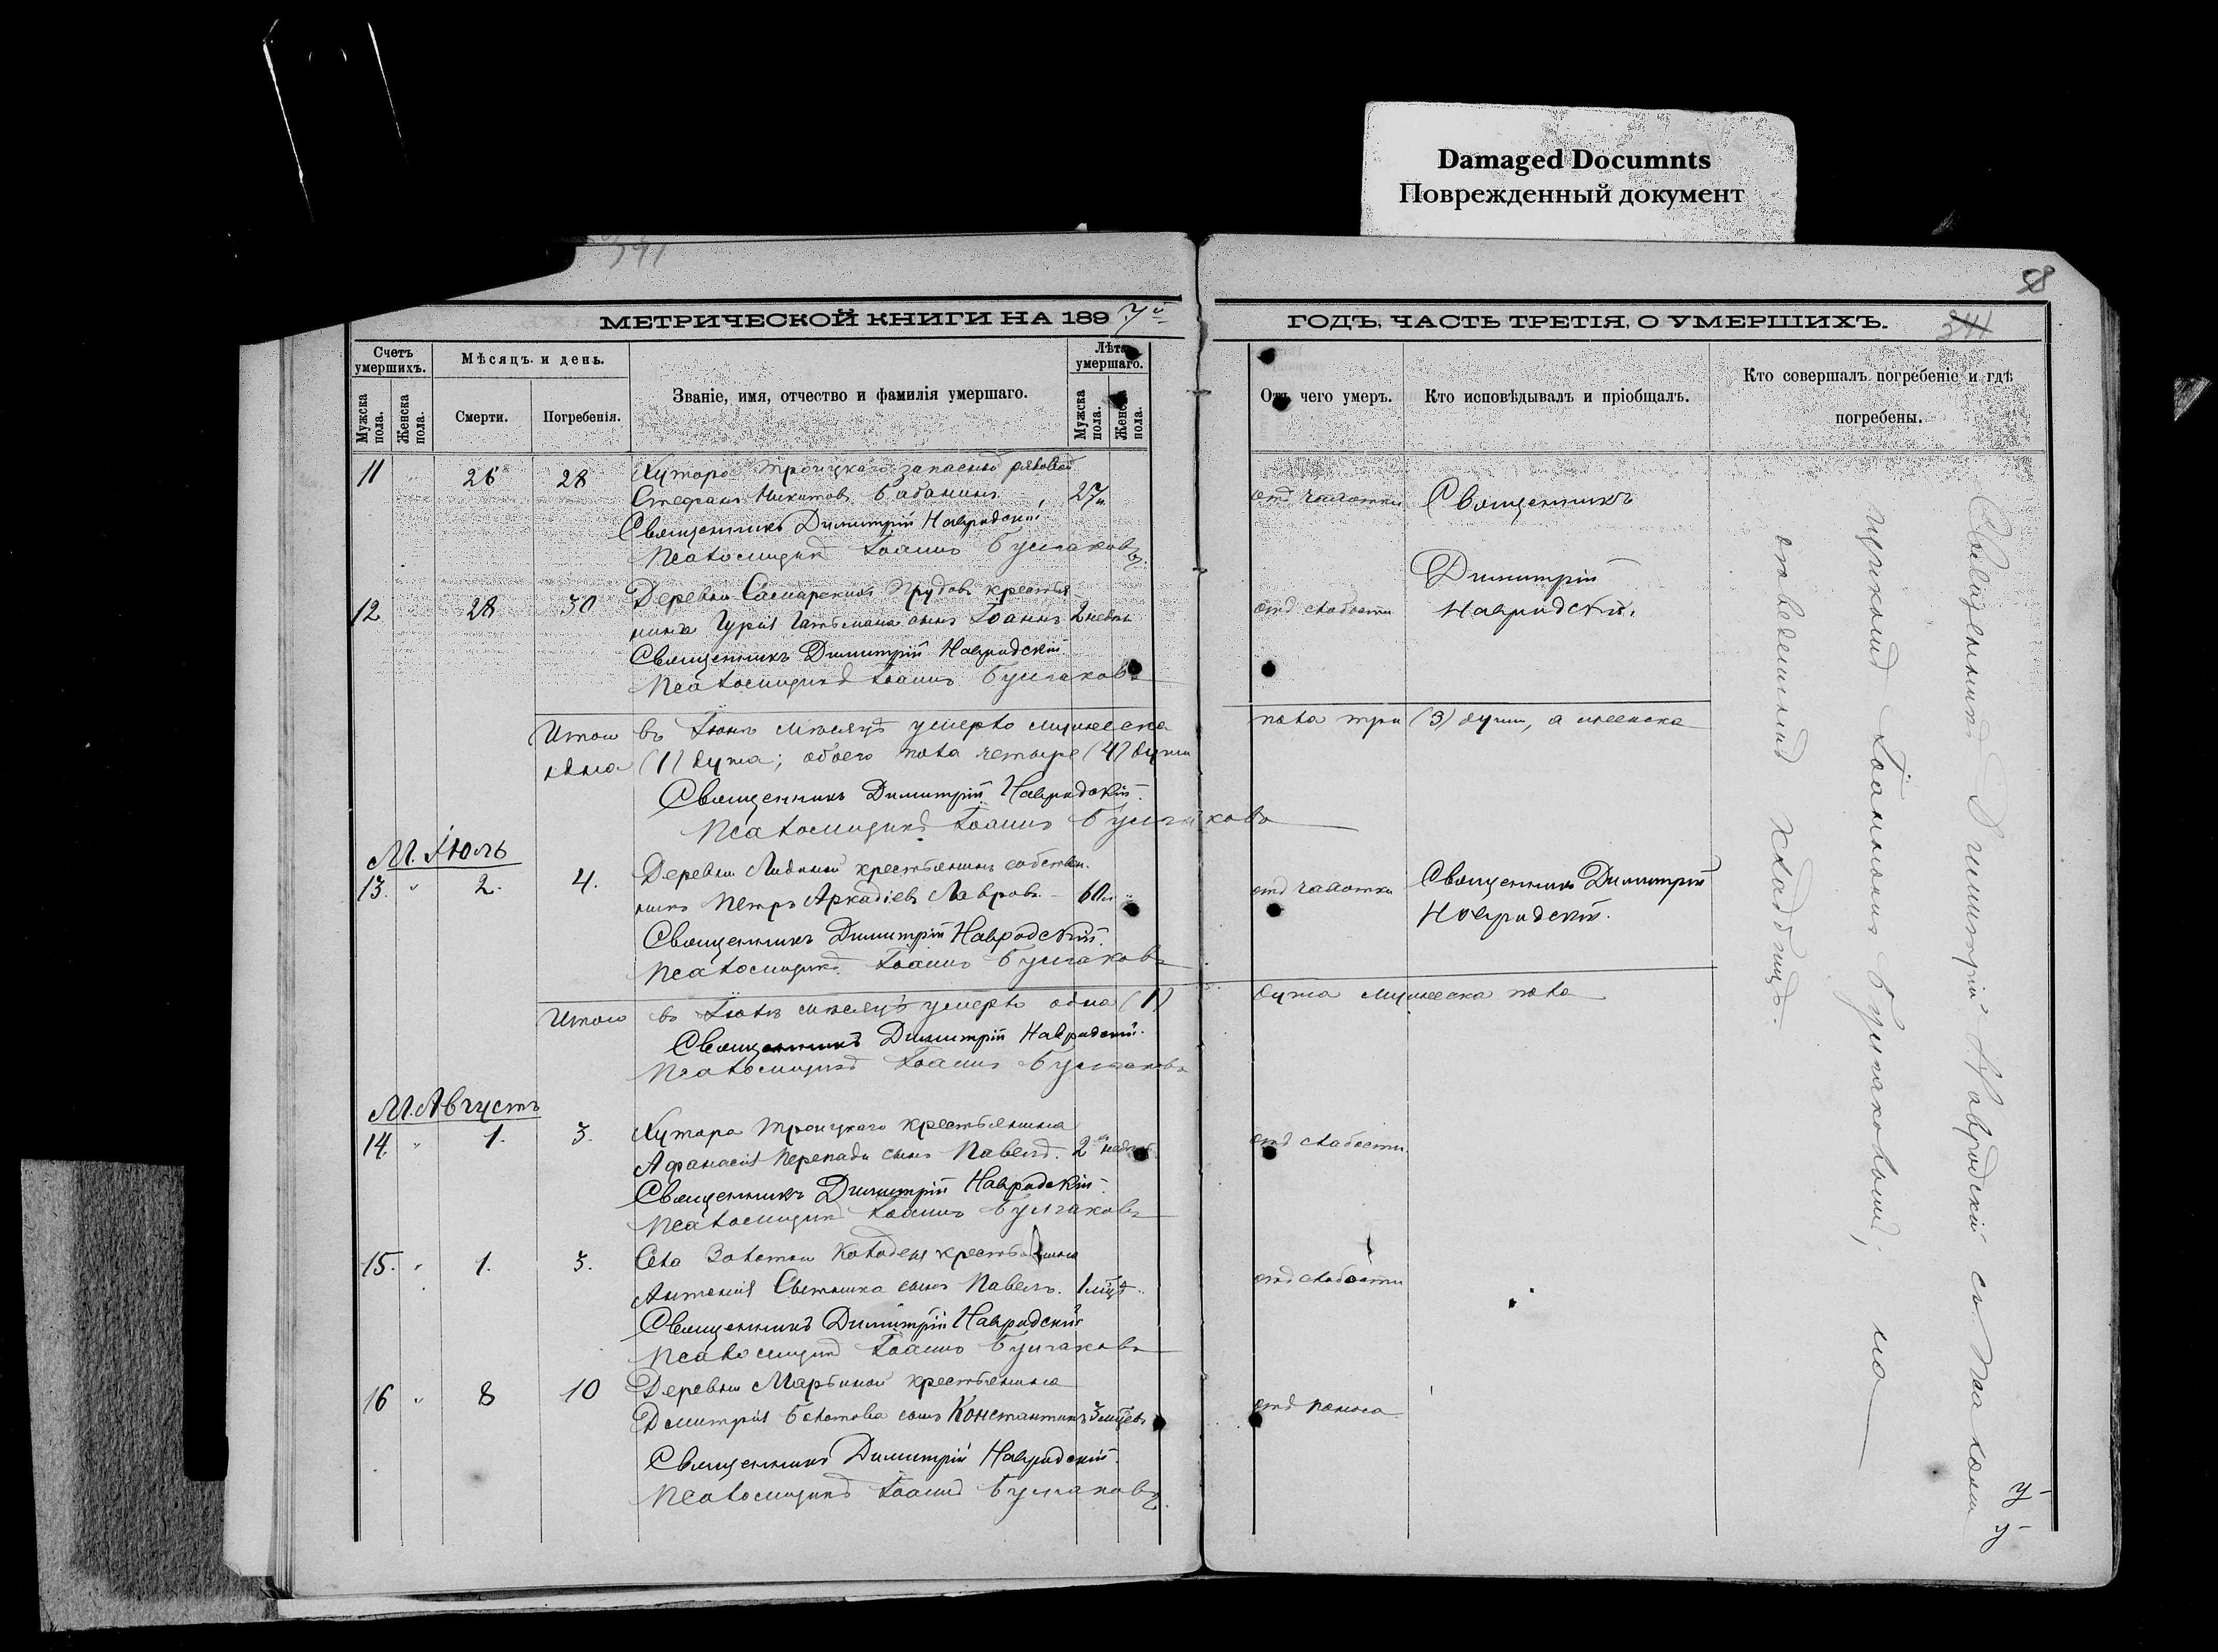 Damaged Documnts
Поврежденный документ
МЕТРИЧЕСКОЙ КНИГИ НА 1897й
ГОДЪ, ЧАСТЬ ТРЕТІЯ, О УМЕРШИХЪ.
Счетъ умершихъ.
Мужска пола.
Женска пола.
Мѣсяцъ и день.
Смерти.
Погребенія.
Званіе, имя, отчество и фамилія умершаго.
Лѣта умершаго.
Мужска пола.
Женска пола.
Отъ чего умеръ.
Кто исповѣдывалъ и пріобщалъ.
Кто совершалъ погребеніе и гдѣ
погребены.
11 26 28 Хутора Троицкаго запасный рядовой
Стефанъ Никитовъ Бабанинъ 27 л. отъ чахотки Священникъ
Священникъ Димитрій Навродскій
Псаломщикъ Іоаннъ Булгаковъ
Димитрій
Навродскій.
12 28 30 Деревни Самарскихъ Прудовъ крестья
нина Гурія сынъ Іоаннъ 2 недѣль отъ слабости
Священникъ Димитрій Навродскій
Псаломщикъ Іоаннъ Булгаковъ
Итого въ Іюнѣ мѣсяцѣ умерло мужеска пола три (3) души, а женска
одна (1) душа; обоего пола четыре (4) души
Священникъ Димитрій Навродскій.
Псаломщикъ Іоаннъ Булгаковъ
М. Іюль
13. " 2. 4. Деревни крестьянинъ собствен.
никъ Петръ Аркадіевъ Лавровъ 60 л. отъ чахотки Священникъ Димитрій
Навродскій.
Священникъ Димитрій Навродскій.
Псаломщикъ Іоаннъ Булгаковъ
Итого въ Іюлѣ мѣсяцѣ умерло одна (1) душа мужеска пола
Священникъ Димитрій Навродскій.
Псаломщикъ Іоаннъ Булгаковъ
М. Августъ
14. " 1. 3. Хутора Троицкаго крестьянина
Афанасія Перепади сынъ Павелъ. 2 отъ слабости.
Священникъ Димитрій Навродскій
Псаломщикъ Іоаннъ Булгаковъ
15. " 1. 3. Села Золотой Колодезь крестьянина
Антонія сынъ Павелъ. 1 мѣц. отъ слабости
Священникъ Димитрій Навродскій
Псаломщикъ Іоаннъ Булгаковъ
16 " 8 10 Деревни Марьиной крестьянина
Дмитрія сынъ Константинъ 3 мѣцевъ отъ поноса.
Священникъ Димитрій Навродскій.
Псаломщикъ Іоаннъ Булгаковъ.
Священникъ Димитрій Навродскій съ Псалом
щикомъ Іоанномъ Булгаковымъ; на
отведенномъ кладбищѣ.